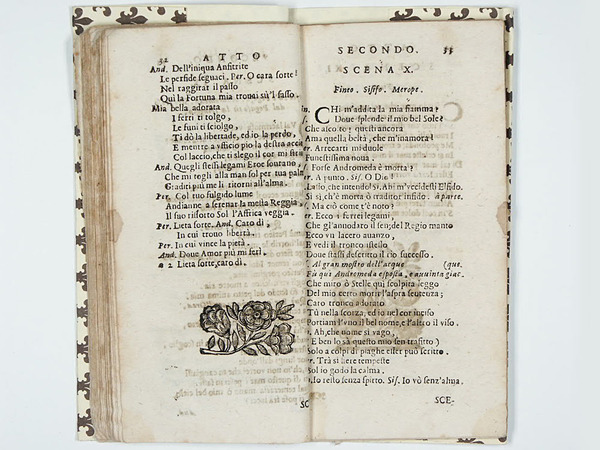 52 ATTO
And. Dell'iniqua Anfitrite
Le perfide seguaci. Per. O cara sorte!
Nel raggirar il passo
Qui la Fortuna mia trouai sù'l sasso.
Mia bella adorata
I ferri ti tolgo,
Le funi ti sciolgo,
Ti dò la libertade, ed io la perdo,
E mentre a vfficio pio la destra acci
Col laccio, che ti slego il cor mi strin
And. Quegli stessi legami Eroe sourano,
Che mi togli alla man sol per tua palm
Graditi più me li ritorni all'alma.
Per. Col tuo fulgido lume
Andianne a serenar la mesta Reggia,
Il suo risorto Sol l'Affrica veggia.
Per. Lieta sorte. And. Caro dì,
In cui trouo libertà.
Per. In cui vince la pietà.
And. Doue Amor più mi ferì.
a 2 Lieta sorte, caro dì.
SECONDO. 53
SCENA X.
Fineo. Sisifo. Merope.
CHi m'addita la mia fiamma?
Doue splende il mio bel Sole?
Che ascolto? questi ancora
Ama quella beltà, che m'inamora!
Arrecarti mi duole
Funestissima noua.
Forse Andromeda è morta?
A punto. Sis. O Dio!
Lasso, che intendo! Sì, Ahi m'vccidesti Elisdo.
Sì sì, ch'è morta ò traditor infido. à parte.
Ma ciò come t'è noto?
Ecco i ferrei legami,
Che gl'annodaro il sen; del Regio manto
Ecco vn lacero auanzo,
E vedi il tronco istesso
Doue stassi descritto il rio successo.
Al gran mostro dell'acque (que.
Fù quì Andromeda esposta, e auuinta giac-
Che miro ò Stelle, quì scolpita leggo
Del mio certo morir l'aspra sentenza;
Caro tronco adorato
Tù nella scorza, ed io nel cor inciso
Portiam l'vno il bel nome, e l'altro il viso.
Ah, che nome sì vago,
E ben lo sà questo mio sen trafitto)
Solo a colpi di piaghe esser può scritto.
Trà sì fiere tempeste
Sol io godo la calma.
Io resto senza spirto. Sis. Io vò senz'alma.
SC
SCE-